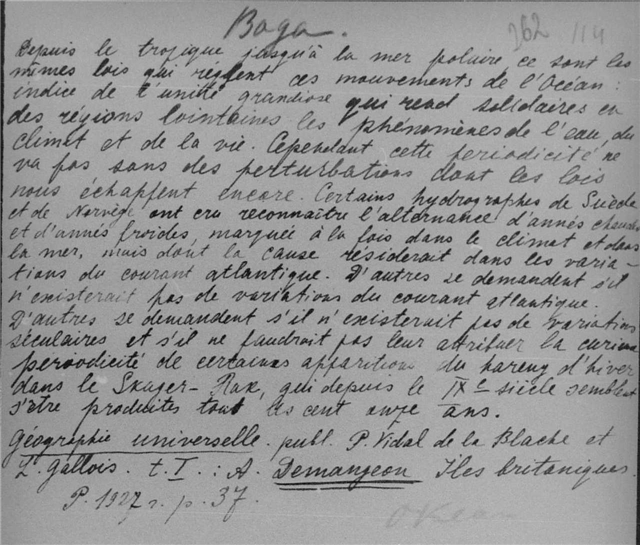 Вода.
262 114
Depuis le tropique jusqu'à la mer polaire, ce sont les
mêmes lois qui règlent ces mouvements de l'Océan:
indice de l'unité grandiose qui rend solidaires en
des régions lointaines les phénomènes de l'eau, du
climat et de la vie. Cependant cette periodicité ne
va pas sans des perturbations dont les lois
nous échappent encore. Certains hydrographes de Suède
et de Norvège ont cru reconnaître l'alternance d'annés chaudes
et d'annés froides, marquée à la fois dans le climat et dans
la mer, mais dont la cause résiderait dans les varia-
tions du courant atlantique. D'autres se demandent s'il
n'existerait pas de variations du courant atlantique.
D'autres se demandent s'il n'existerait pas de variations
séculaires et s'il ne faudrait pas leur attribuer la curieuse
periodicité de certaines apparitions du hareng d'hiver
dans le Skager-Rak, qui depuis le IXe siècle semblent
s'être produites tout les cent onze ans.
Géographie universelle. publ. P. Vidal de la Blache et
L. Gallois. t. I.: A. Demangeon Iles britaniques.
P. 1927 г. p. 37.